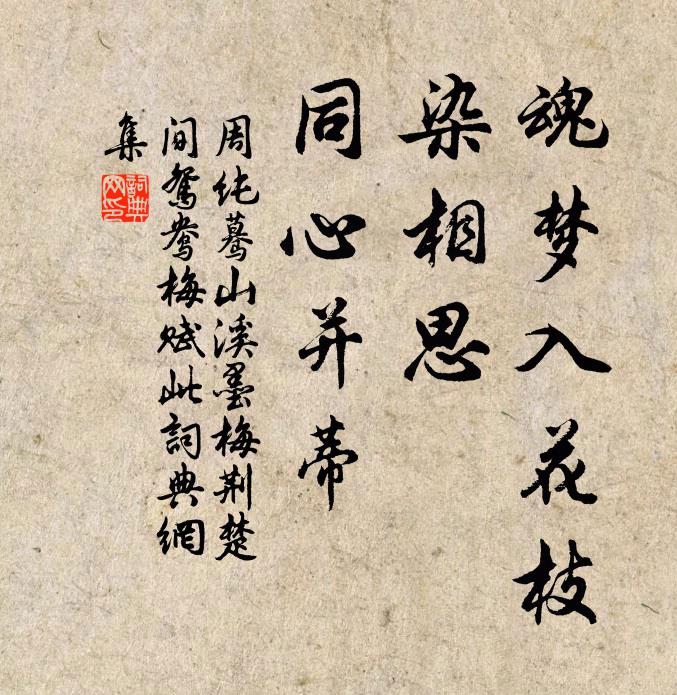 魂梦入花枝
染相思
同心并蒂
周纯蓦山溪墨梅荆楚
间鸳鸯梅赋此詞典網
集
詞典網印